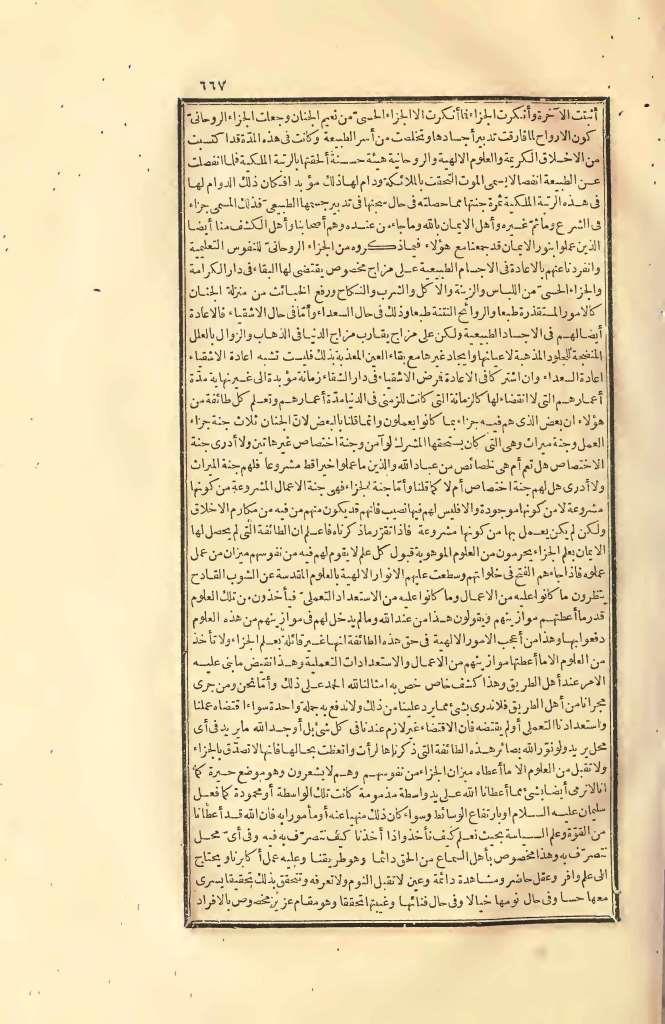 ٦٦٧
أثبتت الآخرة وأنكرت الجزاء فما أنكرت الا الجزاء الحسى من نعيم الجنان وجعلت الجزاء الروحانى
كون الارواح لما فارقت تدبير أجسادها وتخلصت من أسر الطبيعة وكانت فى هذه المدّة قد اكتسبت
من الاخلاق الكريمة والعلوم الالهية والروحانية هيئة حسنة ألحقتها بالرتبة الملكية فلما انفصلت
عن الطبيعة انفصالا يسمى الموت التحقت بالملائكة ودام لها ذلك مؤبدا فكان ذلك الدوام لها
فى هذه الرتبة الملكية ثمرة جنتها مما حصلته فى حال سجنها فى تدبير جسمها الطبيعى فذلك المسمى جزاء
فى الشرع وما ثم غيره وأهل الايمان بالله وما جاء من عنده وهم أصحابنا وأهل الكشف منا أيضا
الذين عملوا بنور الايمان قد جمعنا مع هؤلاء فيما ذكروه من الجزاء الروحانى للنفوس التعليمية
وانفردنا عنهم بالاعادة فى الاجسام الطبيعية على مزاج مخصوص يقتضى لها البقاء فى دار الكرامة
والجزاء الحسى من اللباس والزينة والاكل والشرب والنكاح ورفع الخبائث من منزلة الجنان
كالامور المستقذرة طبعا والروائح النتنة طبعا وذلك فى حال السعداء وأمّا فى حال الاشقياء فالاعادة
أيضا لهم فى الاجساد الطبيعية ولكن على مزاج يقارب مزاج الدنيا فى الذهاب والزوال بالعلل
المنضجة للجلود المذهبة لاعيانها وايجاد غيرها مع بقاء العين المعذبة بذلك فليست تشبه اعادة الاشقياء
اعادة السعداء وان اشتركا فى الاعادة فرض الاشقياء فى دار الشقاء زمانة مؤبدة الى غير نهاية مدّة
أعمارهم التى لا انقضاء لها كالزمانة التى كانت للزمنى فى الدنيا مدّة أعمارهم وتعلم كل طائفة من
هؤلاء ان بعض الذى هم فيه جزاء بما كانوا يعملون وانما قلنا بالبعض لانّ الجنان ثلاث جنة جزاء
العمل وجنة ميراث وهى التى كان يستحقها المشرك لو آمن وجنة اختصاص غير هاتين ولا أدرى جنة
الاختصاص هل تعم أم هى لخصائص من عباد الله والذين ما عملوا خيرا قط مشروعا فلهم جنة الميراث
ولا أدرى هل لهم جنة اختصاص أم لا كما قلنا وأمّا جنة الجزاء فهى جنة الاعمال المشروعة من كونها
مشروعة لا من كونها موجودة والا فليس لهم فيها نصيب فانهم قد يكون منهم من فيه مكارم الاخلاق
ولكن لم يكن يعمل بها من كونها مشروعة فاذا تقرّر ما ذكرناه فاعلم ان الطائفة التى لم يحصل لها
الايمان بعلم الجزاء يحرمون من العلوم الموهوبة قبول كل علم لا يقوم لهم فيه من نفوسهم ميزان من عمل
عملوه فاذا جاءهم الفتح فى خلواتهم وسطعت عليهم الانوار الالهية بالعلوم المقدسة عن الشوب القادح
ينظرون ما كانوا عليه من الاعمال وما كانوا عليه من الاستعداد التعملى فيأخذون من تلك العلوم
قدر ما أعطتهم موازينهم ويقولون هذا من عند الله وما لم يدخل لهم فى موازينهم من هذه العلوم
دفعوا بها وهذا من أعجب الامور الالهية فى حق هذه الطائفة انها غير قائلة بعلم الجزاء ولا تأخذ
من العلوم الا ما أعطتها موازينهم من الاعمال والاستعدادات التعملية وهذا نقيض ما بنى عليه
الامر عند أهل الطريق وهذا كشف خاص خص به امثالنا لله الحمد على ذلك وأمّا نحن ومن جرى
مجرانا من أهل الطريق فلا ندرى بشئ مما يرد علينا من ذلك ولا ندفع به جملة واحدة سواء اقتضاه عملنا
واستعدادنا التعملى أو لم يقتضه فان الاقتضاء غير لازم عندنا فى كل شئ بل أوجد الله ما يريد فى أى
محل يريد ولو نوّر الله بصائر هذه الطائفة التى ذكرناها لرأت واتعظت بحالها فانها لا تصدّق بالجزاء
ولا تقبل من العلوم الا ما أعطاه ميزان الجزاء من نفوسهم وهم لا يشعرون وهو موضع حيرة كما
انا لا نرمى أيضا بشئ مما أعطانا الله على يد واسطة مذمومة كانت تلك الواسطة أو محمودة كما فعل
سليمان عليه السلام او بارتفاع الوسائط وسواء كان ذلك منهيا عنه أو مأمورا به فان الله قد أعطانا
من القوّة وعلم السياسة بحيث نعلم كيف نأخذ واذا أخذنا كيف نتصرّف به وفيه وفى أىّ محل
نتصرّف به وهذا مخصوص بأهل السماع من الحق دائما وهو طريقنا وعليه عمل أكابرنا ويحتاج
الى علم وافر وعقل حاضر ومشاهدة دائمة وعين لا تقبل النوم ولا تعرفه وتتحقق بذلك تحقيقا يسرى
معها حسا وفى حال نومها خيالا وفى حال فنائها وغيبتها تحققا وهو مقام عزيز مخصوص بالافراد